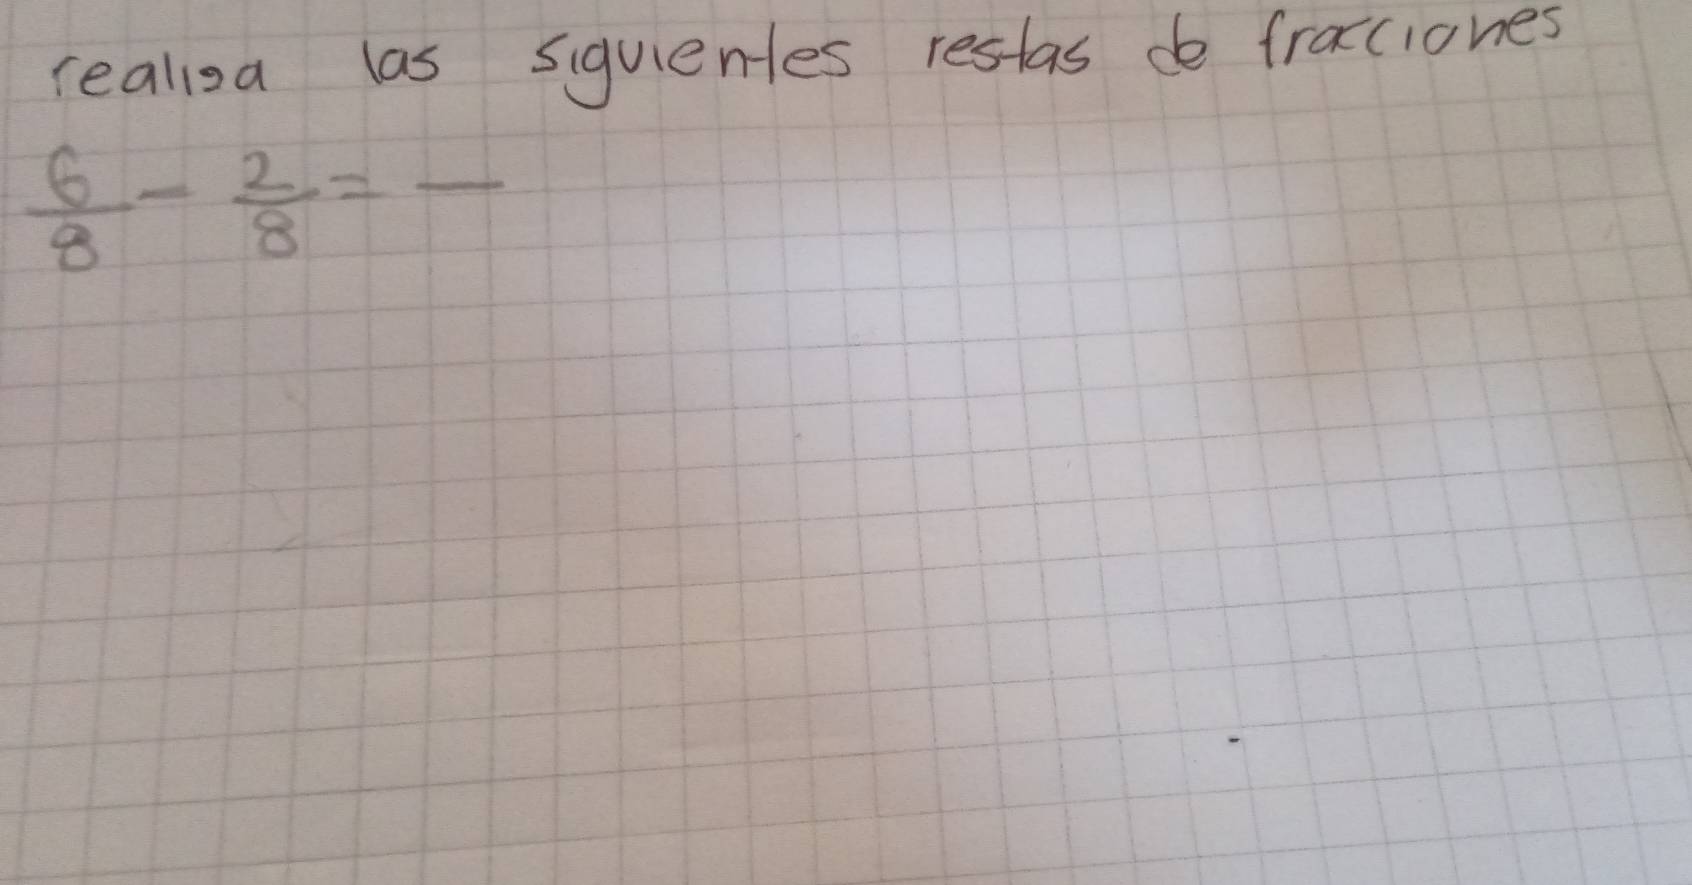 realisa las siguientes restas de fracciones
6/8 - 2/8 = —